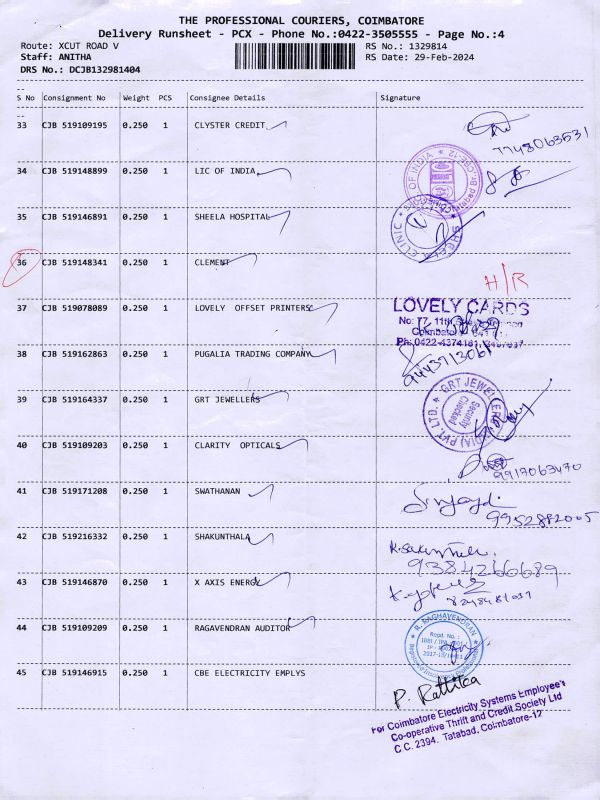 THE PROFESSIONAL COURIERS, COIMBATORE
Delivery Runsheet - PCX - Phone No.:0422-3505555 - Page No.:4
Route: XCUT ROAD V
RS No.: 1329814
Staff: ANITHA
RS Date: 29-Feb-2024
DRS No.: DCJB132981404
S No Consignment No Weight PCS Consignee Details Signature
33 CJB 519109195 0.250 1 CLYSTER CREDIT
7748063531
34 CJB 519148899 0.250 1 LIC OF INDIA
OF INDIA
35 CJB 519146891 0.250 1 SHEELA HOSPITAL
SHEELA CLINIC
36 CJB 519148341 0.250 1 CLEMENT
H/R
37 CJB 519078089 0.250 1 LOVELY OFFSET PRINTERS
LOVELY CARDS
No: 77, 11th
Coimbatore
Ph: 0422-4374161,
38 CJB 519162863 0.250 1 PUGALIA TRADING COMPANY
9443713061
39 CJB 519164337 0.250 1 GRT JEWELLERS
GRT JEWELLERS PVT. LTD.
Security
Checked
40 CJB 519109203 0.250 1 CLARITY OPTICALS
9917063470
41 CJB 519171208 0.250 1 SWATHANAN
9952882005
42 CJB 519216332 0.250 1 SHAKUNTHALA
9384266689
43 CJB 519146870 0.250 1 X AXIS ENERGY
44 CJB 519109209 0.250 1 RAGAVENDRAN AUDITOR
R. RAGHAVENDRAN
Regpt. No. :
45 CJB 519146915 0.250 1 CBE ELECTRICITY EMPLYS
P. Rathika
For Coimbatore Electricity Systems Employee's
Co-operative Thrift and Credit Society Ltd
C.C. 2394, Tatabad, Coimbatore-12